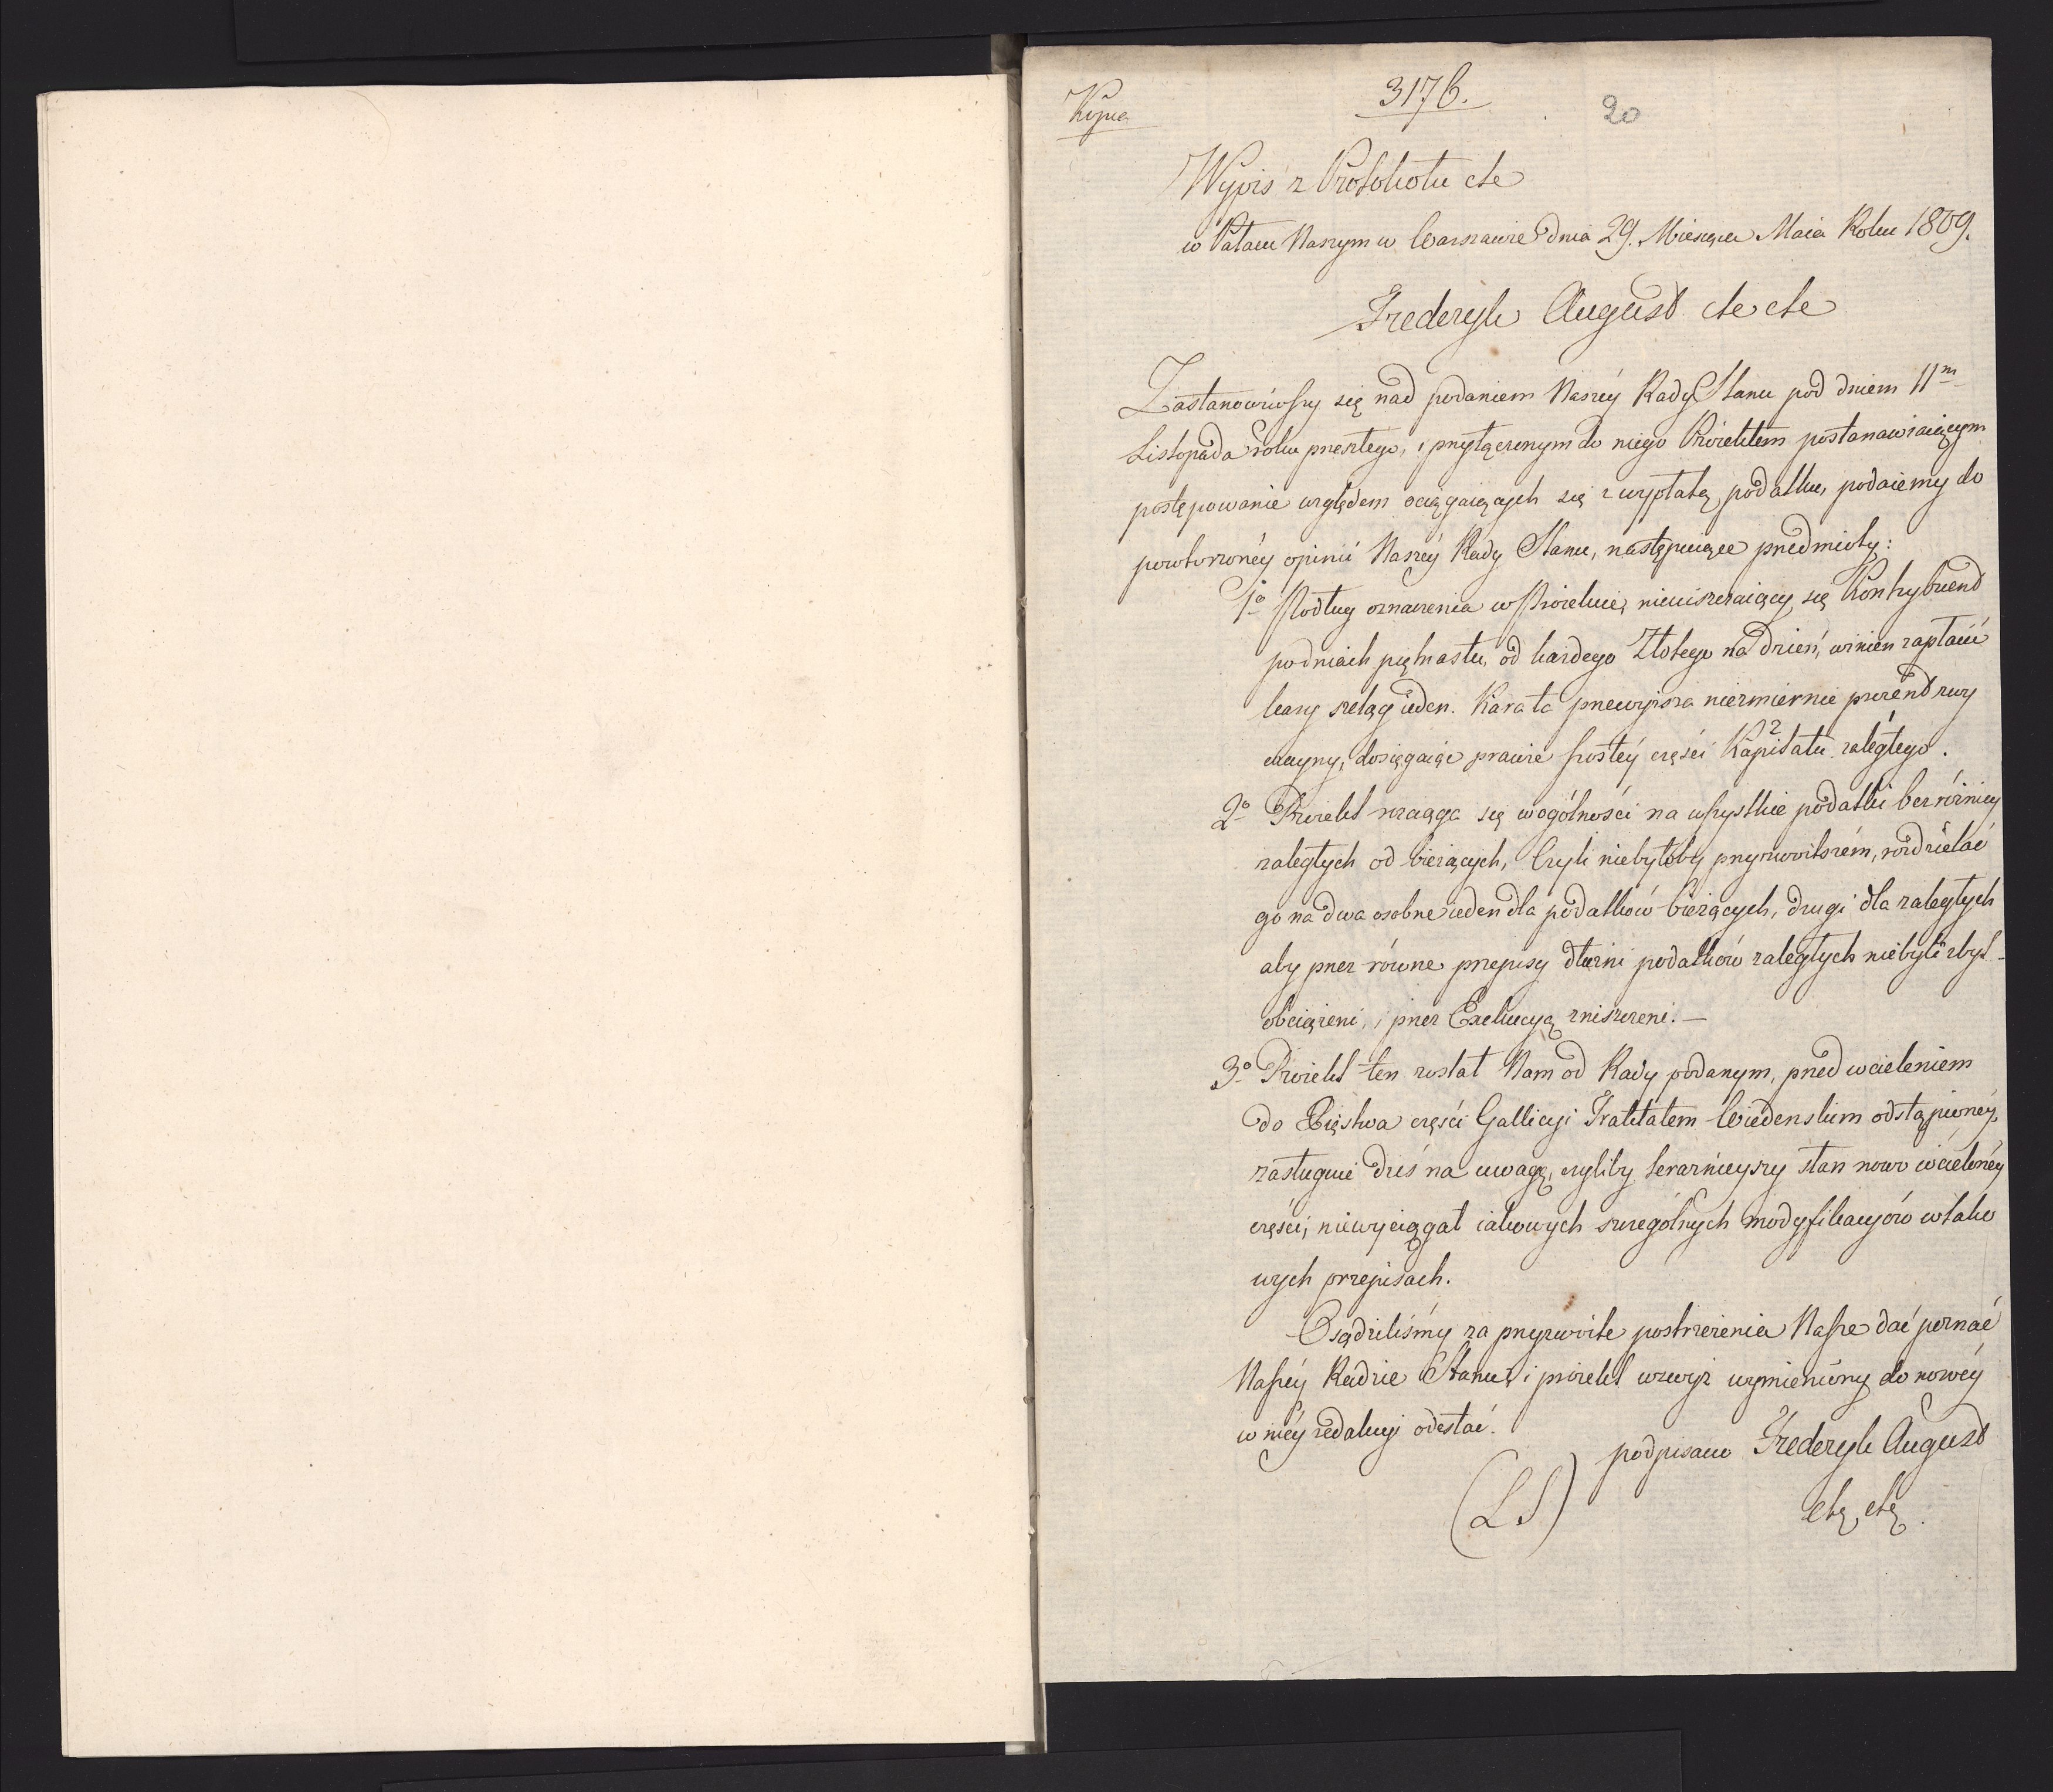 Kopia
3176.
20
Wypis z Protokołu etc
w Pałacu Naszym w Warszawie dnia 29. Miesiąca Maia Roku 1809.
Frederyk August etc etc
Zastanowiwszy się nad podaniem Naszéy Rady Stanu pod dniem 11m
Listopada roku przeszłego, i przyłączonym do niego Proiektem postanawiaiącym
postępowanie względem ociągaiących się z wypłatą podatku, podaiemy do
powtorzonéy opinii Naszéy Rady Stanu, następuiące przedmioty:
1o Podług oznaczenia w Proiekcie, nieuiszczaiący się Kontrybuent
po dniach piętnastu, od każdego Złotego na dzień, winien zapłacić
kary szeląg ieden. Kara ta przewyższa niezmiernie procent zwy
czayny, dosięgaiąc prawie szostéy części Kapitału zaległego.
2o Proiekt rozciąga się w ogólności na wszystkie podatki bez różnicy
zaległych od bieżących, Czyli niebyłoby przyzwoitszém, rozdzielać
go na dwa osobne ieden dla podatków bieżących, drugi dla zaległych
aby przez równe przepisy dłużni podatków zaległych niebyli zbyt
obciążeni, i przez Exekucyą zniszczeni. —
3o Proiekt ten został Nam od Rady podanym, przed wcieleniem
do Xięstwa części Gallicyi Traktatem Wiedenskim odstąpionéy,
zasługuie dziś na uwagę, czyliby terażnieyszy stan nowo wcielonéy
części, niewyciągał iakowych szczególnych modyfikacyów w tako
wych przepisach.
Osądziliśmy za przyzwoite postrzeżenia Nasze dać poznać
Naszéy Radzie Stanu, i proiekt wzwyż wymieniony do nowéy
w niéy redakcyi odesłać.
podpisano Frederyk August
(LS)
etc etc.